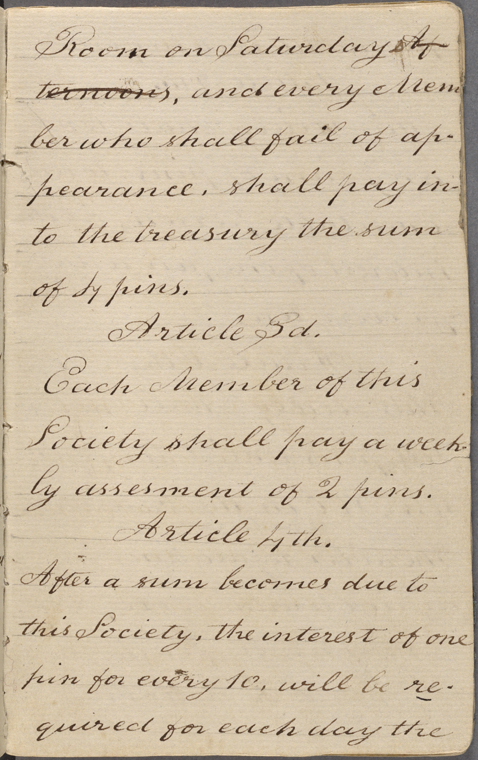 Room on Saturday Af
ternoons, and every Mem
ber who shall fail of ap-
pearance. shall pay in-
to the treasury the sum
of 4 pins.
Article 3d.
Each Member of this
Society shall pay a week-
ly assesment of 2 pins.
Article 4th.
After a sum becomes due to
this Society, the interest of one
pin for every 10, will be re-
quired for each day the